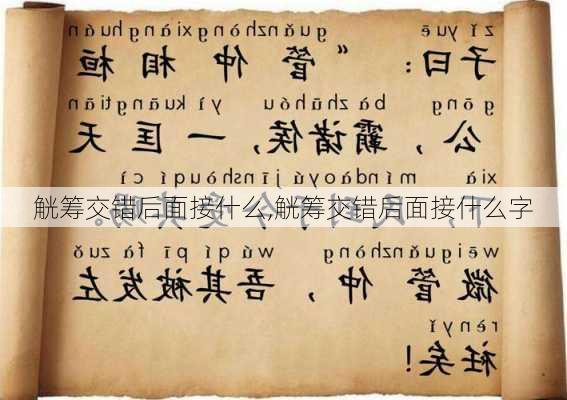 zǐ yuē guǎnzhòngxiànghuán
子曰：“管仲相桓
gōng bà zhūhóu yì kuāngtiān
公，霸诸侯，一匡天
xià míndàoyújīnshòuqí cì
觥筹交错后面接什么,觥筹交错后面接什么字
wēiguǎnzhòng wú qí pī fà zuǒ
微管仲，吾其被发左
rènyǐ
衽矣！